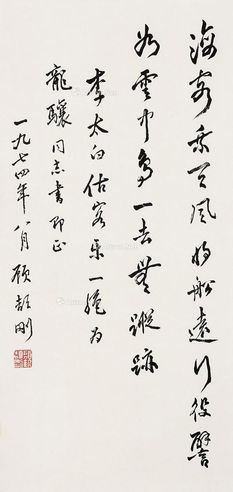 海客乘天风将船远行役譬
如云中鸟一去无踪迹
李太白估客乐一绝为
龍驤同志书即正
一九七四年八月 顾颉刚